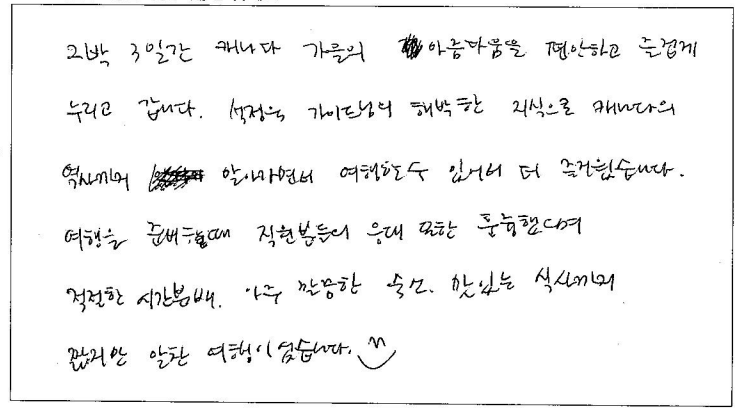 2박 3일간 캐나다 가을의 아름다움을 편안하고 즐겁게
누리고 갑니다. 석정욱 가이드님의 해박한 지식으로 캐나다의
역사까지 알아가면서 여행할 수 있어서 더 즐거웠습니다.
여행을 준비할때 직원분들의 응대 또한 훌륭했으며
적절한 시간분배. 아주 깔끔한 숙소. 맛있는 식사까지
짧지만 알찬 여행이었습니다.